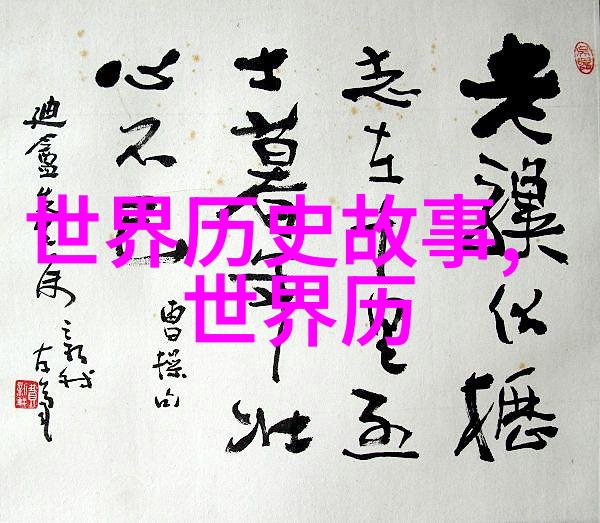 世界历史故事,
世界历
老驥伏櫪
志在千里烈
士暮年壮
心不已
曹操句